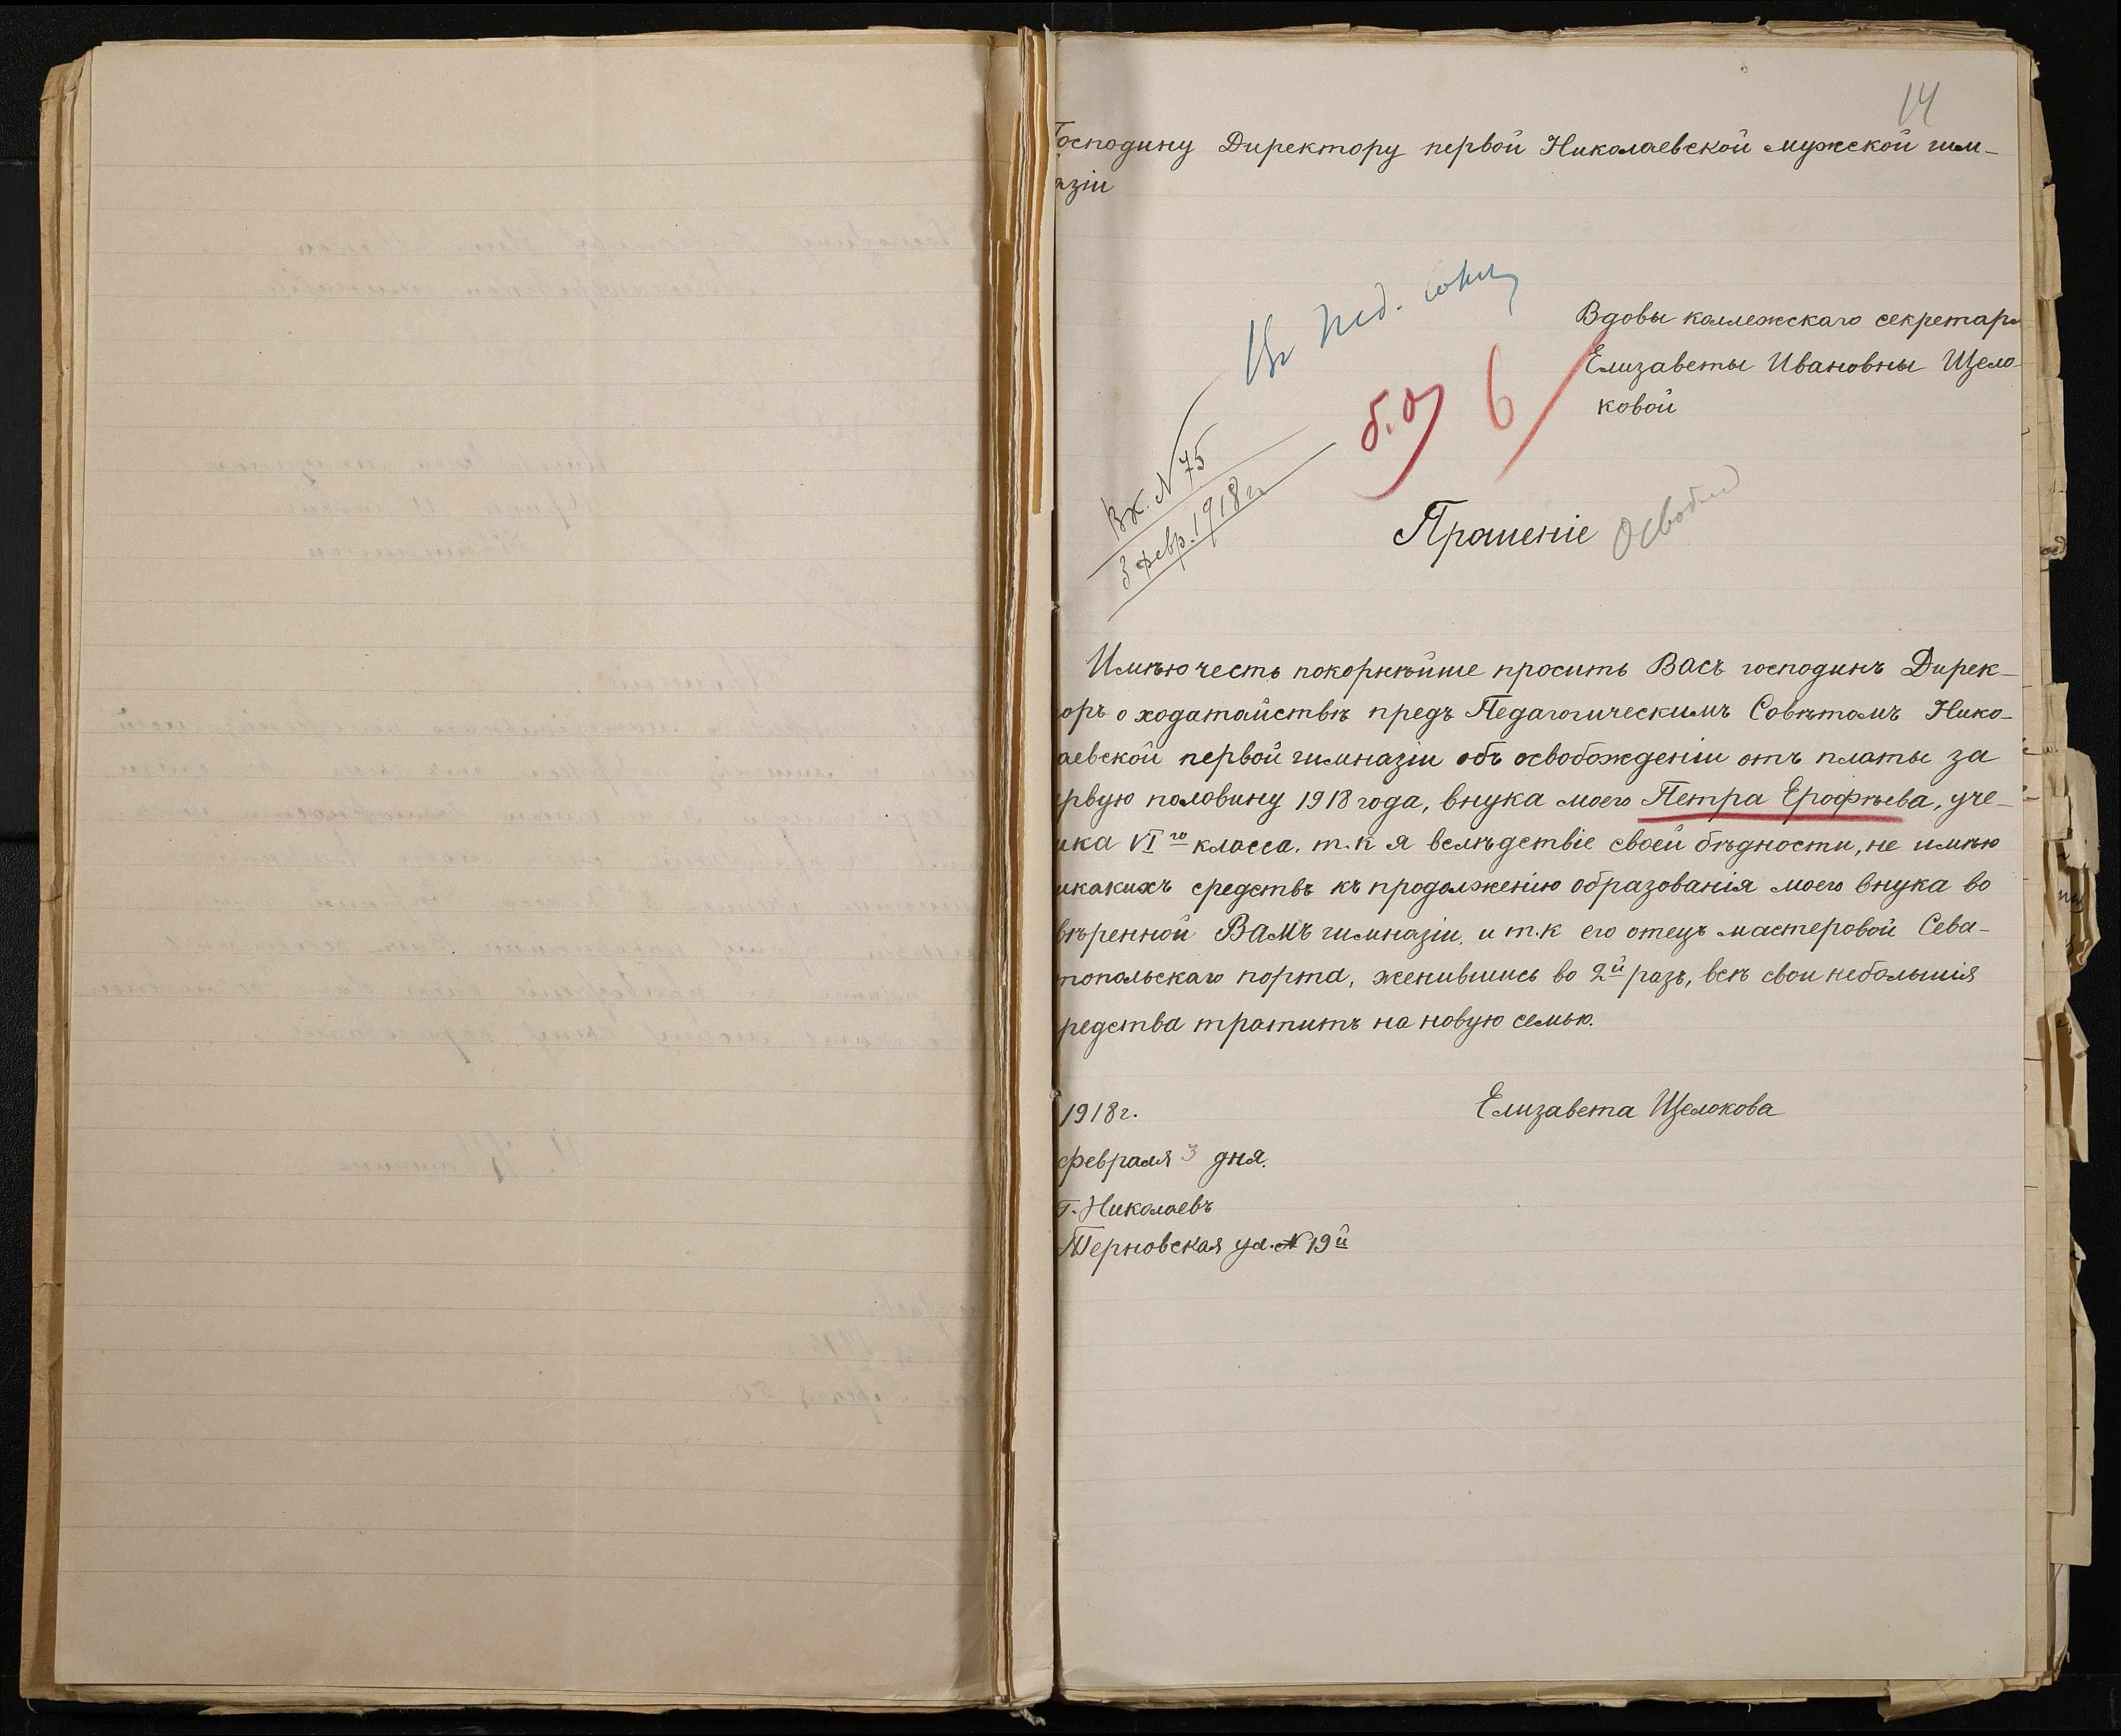 14
Господину Директору первой Николаевской мужской гим-
азіи
Въ Пед. Совѣт
Вдовы коллежскаго секретаря
Елизаветы Ивановны Щело-
ковой
б.
6
Вх. N 75
3 февр. 1918 г.
Прошеніе
Освобод
Имѣю честь покорнѣйше просить Васъ господинъ Дирек-
оръ о ходатайствѣ предъ Педагогическимъ Совѣтомъ Нико-
аевской первой гимназіи объ освобожденіи отъ платы за
рвую половину 1918 года, внука моего Петра Ерофѣева, уче-
ика VI го класса. т.к я вслѣдствіе своей бѣдности, не имѣю
икакихъ средствъ къ продолженію образованія моего внука во
вѣренной Вамъ гимназіи, и т.к его отецъ мастеровой Сева-
топольскаго порта, женившись во 2й разъ, всѣ свои небольшія
редства тратитъ на новую семью.
1918 г.
Елизавета Щелокова
февраля 3 дня.
г. Николаевъ
Терновская ул. N 19й